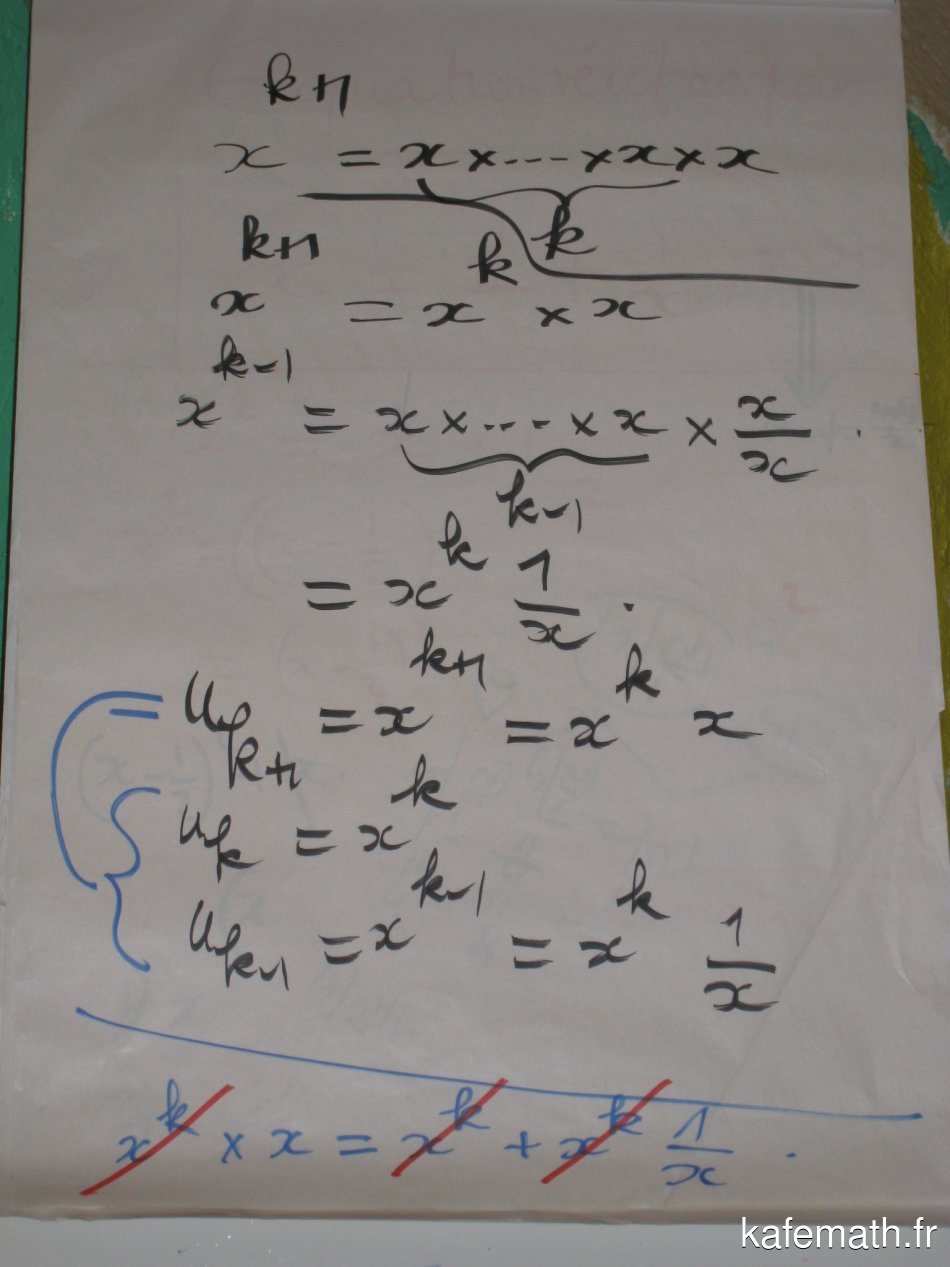 x^{k+1} = x × ... × x × x
k
x^{k+1} = x^k × x
x^{k-1} = x × ... × x × x/x .
k-1
= x^k 1/x .
u_{k+1} = x^{k+1} = x^k x
u_k = x^k
u_{k-1} = x^{k-1} = x^k 1/x
x^k × x = x^k + x^k 1/x .
kafemath.fr